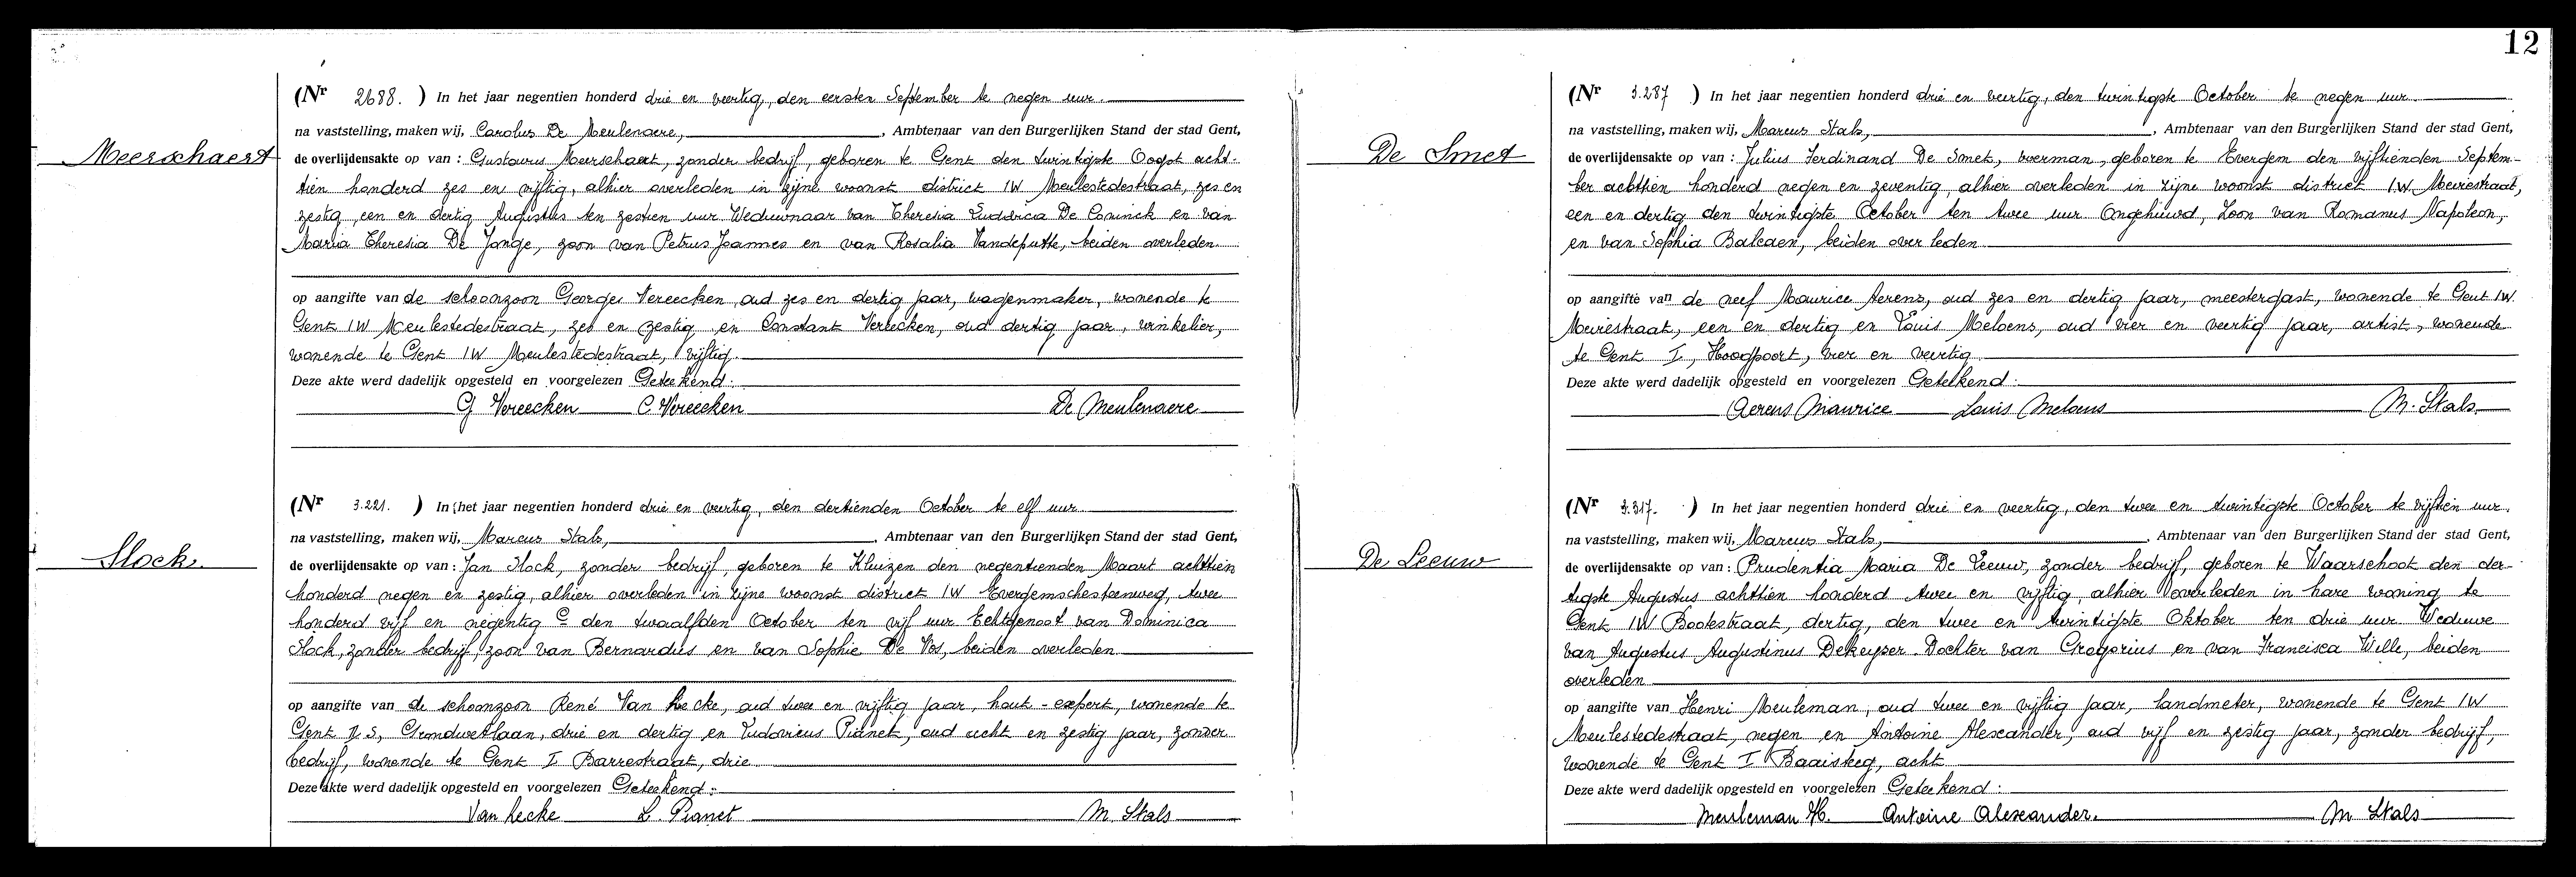 12
Meerschaert
(Nr 2688.) In het jaar negentien honderd drie en veertig, den eersten September te negen uur.
na vaststelling, maken wij, Carolus De Meulenaere, , Ambtenaar van den Burgerlijken Stand der stad Gent,
de overlijdensakte op van : Gustavus Meerschaert, zonder bedrijf, geboren te Gent den twintigste Oogst acht-
tien honderd zes en vijftig, alhier overleden in zijne woonst district IW Meulestedestraat, zes en
zestig, een en dertig Augustus ten zestien uur Weduwnaar van Theresia Ludovica De Coninck en van
Maria Theresia De Jonge, zoon van Petrus Joannes en van Rosalia Vandeputte, beiden overleden.
op aangifte van de schoonzoon Georges Vereecken oud zes en dertig jaar, wagenmaker, wonende te
Gent IW Meulestedestraat, zes en zestig en Constant Vereecken, oud dertig jaar, winkelier,
wonende te Gent IW Meulestedestraat, vijftig.
Deze akte werd dadelijk opgesteld en voorgelezen Geteekend:
G Vereecken C Vereecken De Meulenaere
Slock.
(Nr 3.221.) In het jaar negentien honderd drie en veertig, den dertienden October te elf uur
na vaststelling, maken wij, Marcus Stals, , Ambtenaar van den Burgerlijken Stand der stad Gent,
de overlijdensakte op van : Jan Slock, zonder bedrijf, geboren te Kluizen den negentienden Maart achttien
honderd negen en zestig, alhier overleden in zijne woonst district IW Evergemschesteenweg, twee
honderd vijf en negentig C den twaalfden October ten vijf uur Echtgenoot van Dominica
Slock, zonder bedrijf, zoon van Bernardus en van Sophie De Vos, beiden overleden
op aangifte van de schoonzoon René Van hecke, oud twee en vijftig jaar, hout-expert, wonende te
Gent Grondwetlaan, drie en dertig en Ludovicus Pianet, oud acht en zestig jaar, zonder
bedrijf, wonende te Gent I Barrestraat, drie
Deze akte werd dadelijk opgesteld en voorgelezen Geteekend:
Van hecke L. Pianet M Stals
De Smet
(Nr 3.287) In het jaar negentien honderd drie en veertig, den twintigste October te negen uur.
na vaststelling, maken wij, Marcus Stals, , Ambtenaar van den Burgerlijken Stand der stad Gent,
de overlijdensakte op van : Julius Ferdinand De Smet, voerman, geboren te Evergem den vijftienden Septem-
ber achttien honderd negen en zeventig, alhier overleden in zijne woonst district I.W. Meviestraat,
een en dertig den twintigste October ten twee uur Ongehuwd, Zoon van Romanus Napoleon,
en van Sophia Balcaen, beiden overleden
op aangifte van de neef Maurice Aerens, oud zes en dertig jaar, meestergast, wonende te Gent IW.
Meviestraat, een en dertig en Louis Meloens, oud vier en veertig jaar, artist, wonende
te Gent I, Hoogpoort, vier en veertig
Deze akte werd dadelijk opgesteld en voorgelezen Geteekend:
Aerens Maurice Louis Meloens M. Stals
De Leeuw
(Nr 3.317.) In het jaar negentien honderd drie en veertig, den twee en twintigste October te vijftien uur.
na vaststelling, maken wij, Marcus Stals, , Ambtenaar van den Burgerlijken Stand der stad Gent,
de overlijdensakte op van : Prudentia Maria De Leeuw, zonder bedrijf, geboren te Waarschoot den der-
tigste Augustus achttien honderd twee en vijftig, alhier overleden in hare woning te
Gent IW Bootestraat, dertig, den twee en twintigste Oktober ten drie uur Weduwe
van Augustus Augustinus Dekeyser Dochter van Gregorius en van Francisca Wille, beiden
overleden
op aangifte van Henri Meuleman, oud twee en vijftig jaar, landmeter, wonende te Gent IW
Meulestedestraat, negen en Antoine Alexander, oud vijf en zestig jaar, zonder bedrijf,
wonende te Gent I Baaisteeg, acht
Deze akte werd dadelijk opgesteld en voorgelezen Geteekend:
Meuleman H. Antoine Alexander. M Stals